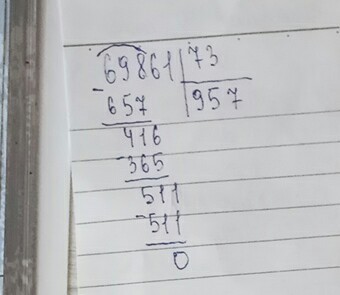 69861 73
- 657 957
416
- 365
511
- 511
0